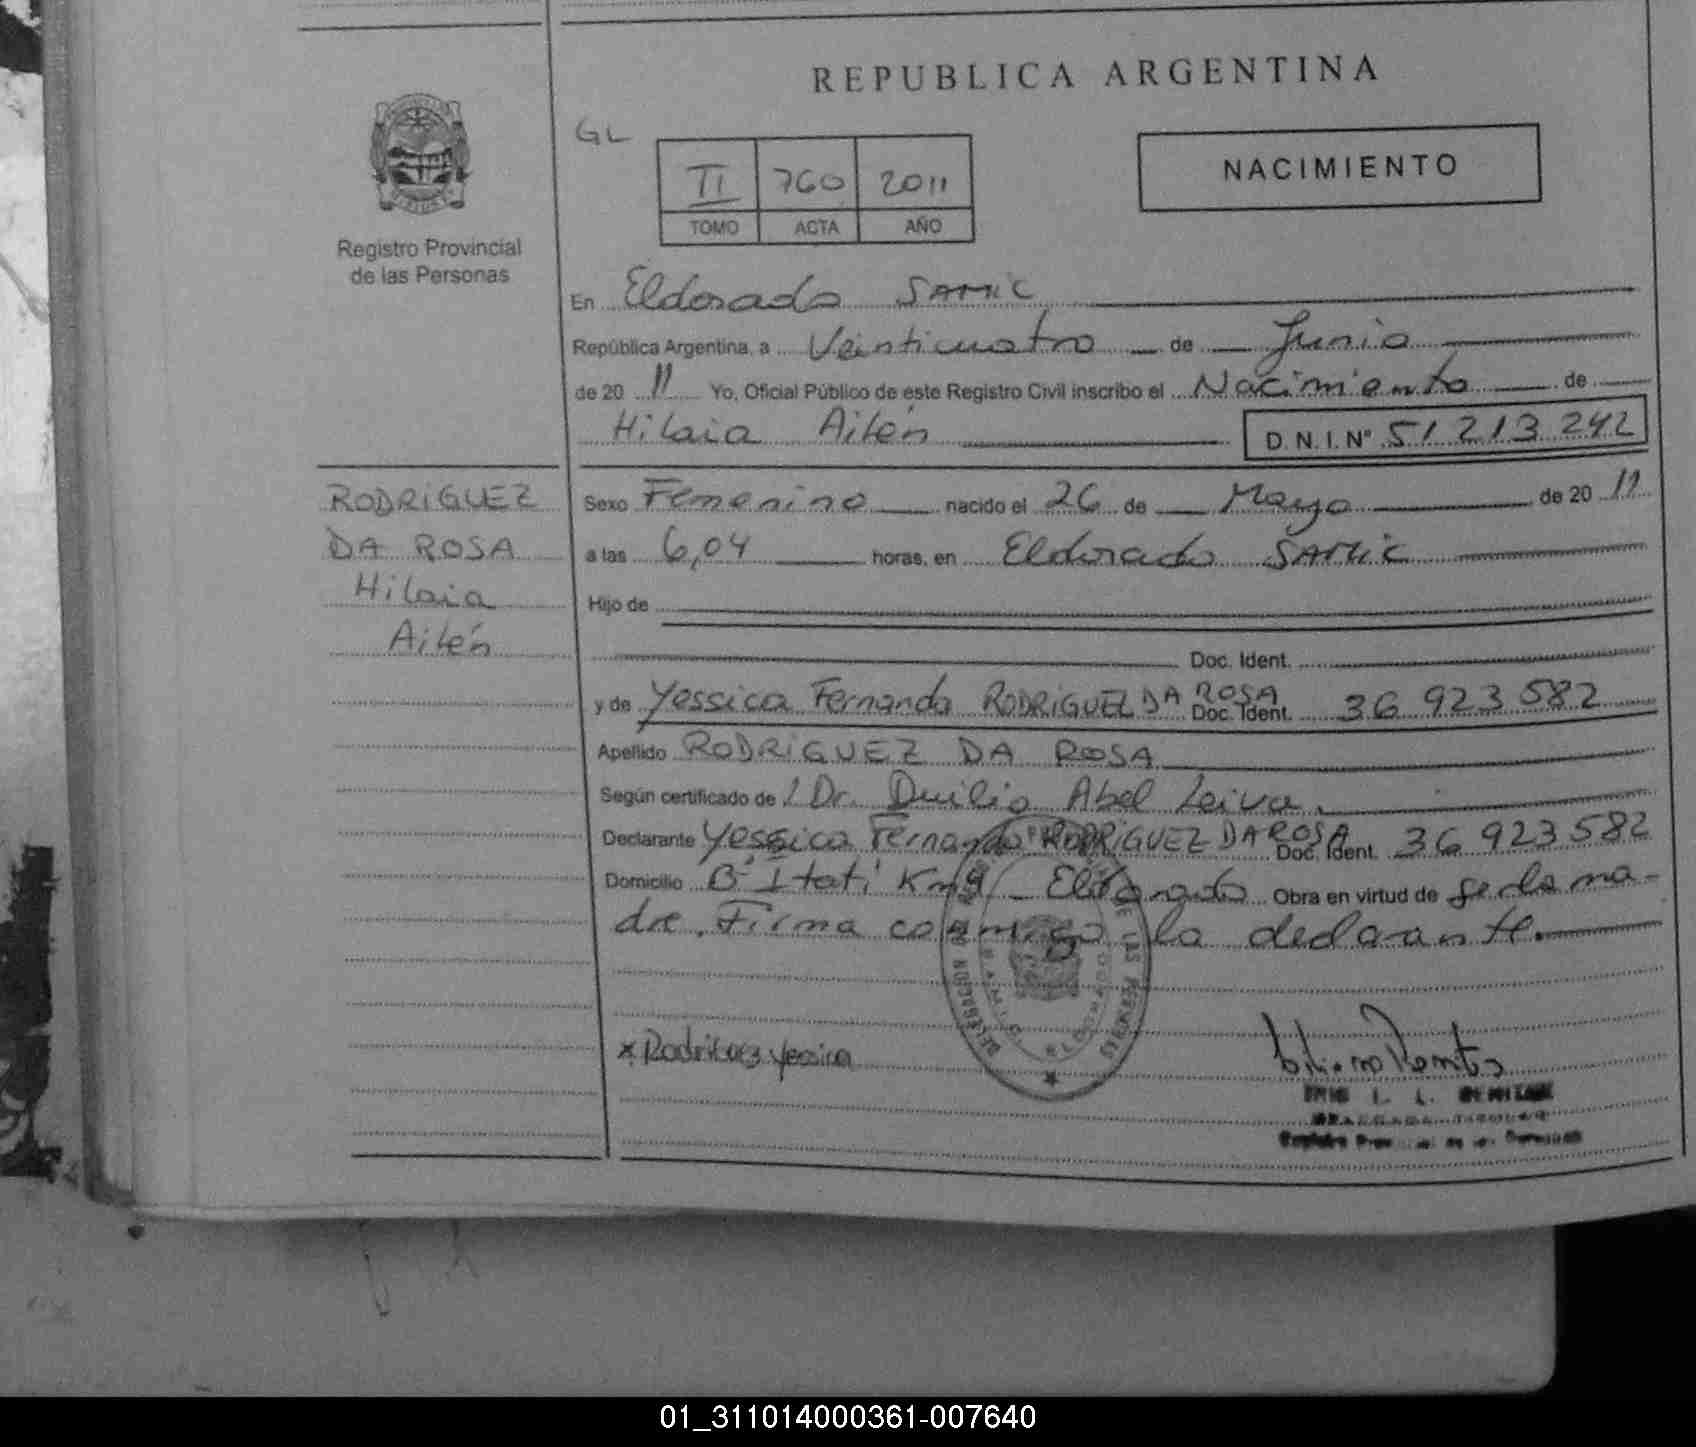 REPUBLICA ARGENTINA
GL
II 760 2011
TOMO ACTA AÑO
NACIMIENTO
Registro Provincial
de las Personas
En Eldorado SAMIC
República Argentina, a Veinticuatro de Junio
de 20 11 Yo, Oficial Público de este Registro Civil inscribo el Nacimiento de
Hilaia Ailén D.N.I.Nº 51 213 242
RODRIGUEZ
DA ROSA
Hilaia
Ailén
Sexo Femenino nacido el 26 de Mayo de 20 11
a las 6,04 horas, en Eldorado SAMIC
Hijo de
Doc. Ident.
y de Yessica Fernanda RODRIGUEZ DA ROSA Doc. Ident. 36 923 582
Apellido RODRIGUEZ DA ROSA
Según certificado de / Dr. Duilio Abel Leiva.
Declarante Yessica Fernanda RODRIGUEZ DA ROSA Doc. Ident. 36 923 582
Domicilio Bº Itati Km 9 Eldorado Obra en virtud de ser la ma-
dre. Firma conmigo la declarante.
DELEGACION DE LAS PERSONAS
ELDORADO
x Rodriguez Yessica
01_311014000361-007640